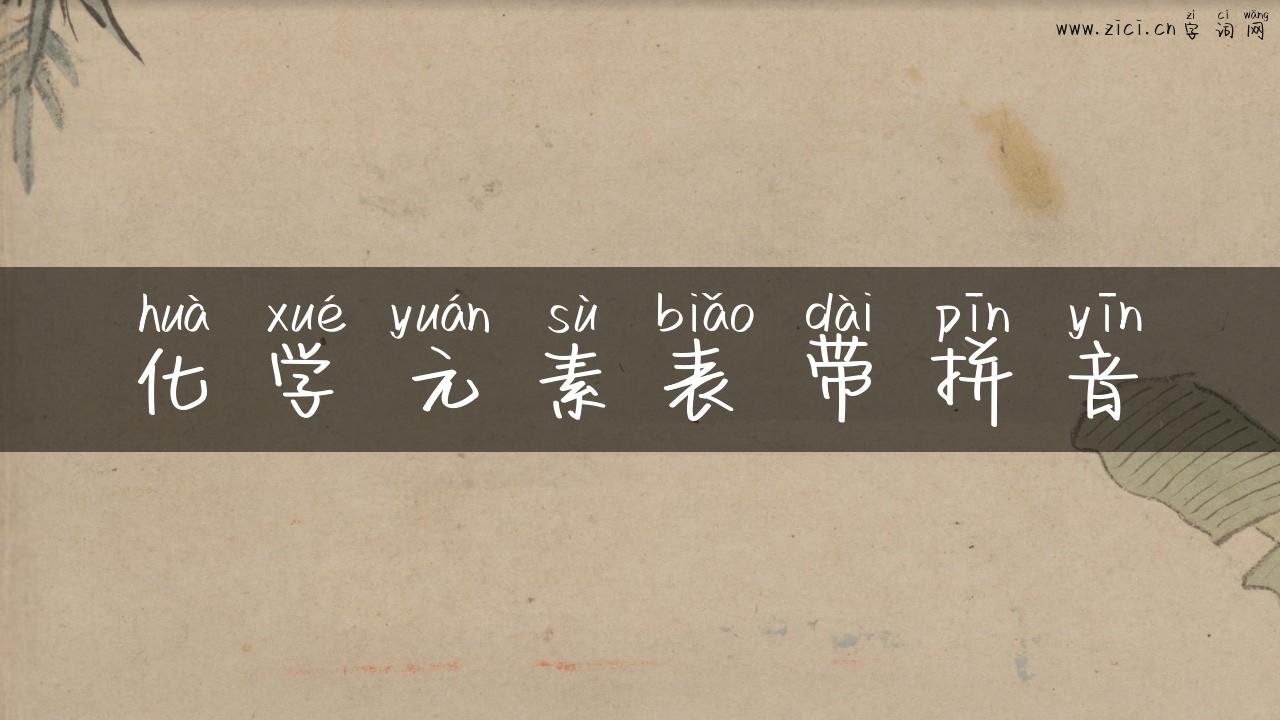 zì cí wǎng
www.zici.cn 字词网
huà xué yuán sù biǎo dài pīn yīn
化学元素表带拼音